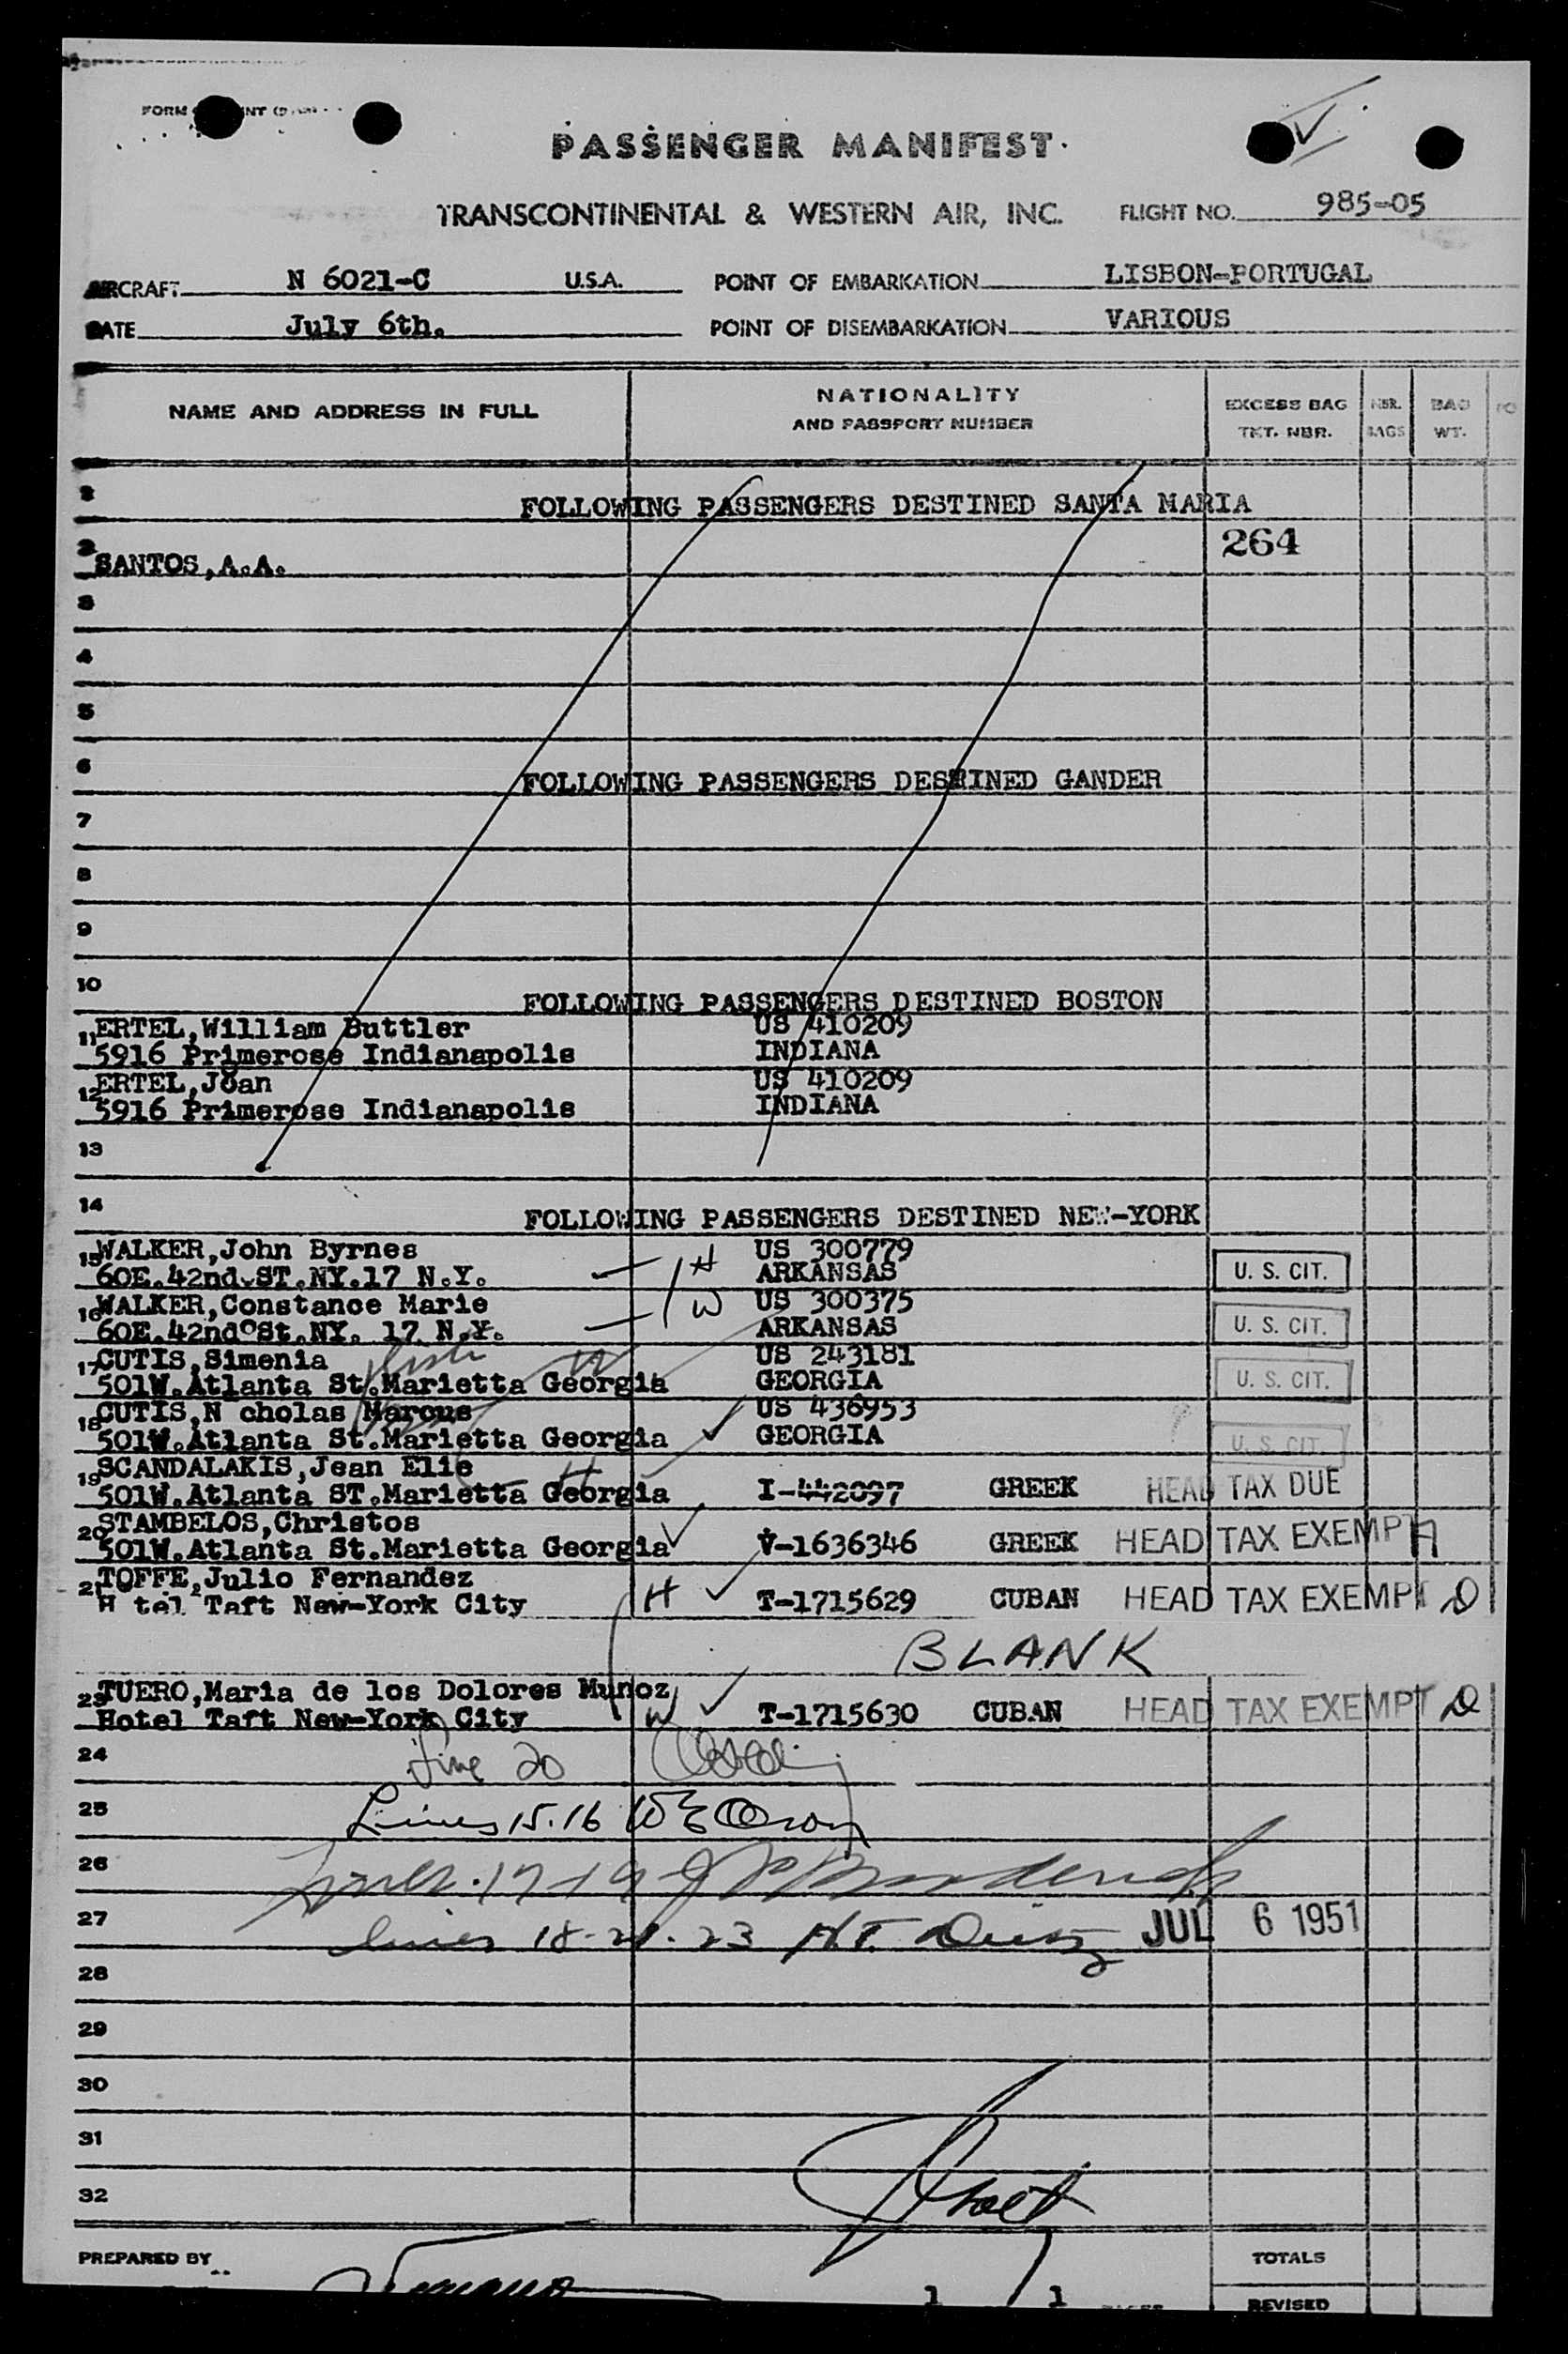 FORM
PASSENGER MANIFEST
TRANSCONTINENTAL & WESTERN AIR, INC. FLIGHT NO. 985-05
AIRCRAFT N 6021-C U.S.A. POINT OF EMBARKATION LISBON-PORTUGAL
DATE July 6th. POINT OF DISEMBARKATION VARIOUS
NAME AND ADDRESS IN FULL NATIONALITY AND PASSPORT NUMBER EXCESS BAG TKT. NBR. NBR. BAGS BAG WT.
1 FOLLOWING PASSENGERS DESTINED SANTA MARIA
2 SANTOS,A.A. 264
3
4
5
6 FOLLOWING PASSENGERS DESTINED GANDER
7
8
9
10 FOLLOWING PASSENGERS DESTINED BOSTON
11 ERTEL,William Buttler US 410209
5916 Primerose Indianapolis INDIANA
12 ERTEL,Joan US 410209
5916 Primerose Indianapolis INDIANA
13
14 FOLLOWING PASSENGERS DESTINED NEW-YORK
15 WALKER,John Byrnes H US 300779
60E.42nd.ST.NY.17 N.Y. ARKANSAS U. S. CIT.
16 WALKER,Constance Marie W US 300375
60E.42nd St.NY. 17 N.Y. ARKANSAS U. S. CIT.
17 CUTIS,Simenia W US 243181
501W.Atlanta St.Marietta Georgia GEORGIA U. S. CIT.
18 CUTIS,N cholas Marcus US 436953
501W.Atlanta St.Marietta Georgia GEORGIA U. S. CIT.
19 SCANDALAKIS,Jean Elie H
501W.Atlanta ST.Marietta Georgia I-442097 GREEK HEAD TAX DUE
20 STAMBELOS,Christos
501W.Atlanta St.Marietta Georgia V-1636346 GREEK HEAD TAX EXEMPT A
21 TOFFE,Julio Fernandez
H tel Taft New-York City H T-1715629 CUBAN HEAD TAX EXEMPT D
BLANK
23 TUERO,Maria de los Dolores Munoz
Hotel Taft New-York City W T-1715630 CUBAN HEAD TAX EXEMPT D
24 Line 20
25 Lines 15.16
26 Lines 17-19
27 lines 18-21-23 JUL 6 1951
28
29
30
31
32
PREPARED BY TOTALS
1 1 REVISED